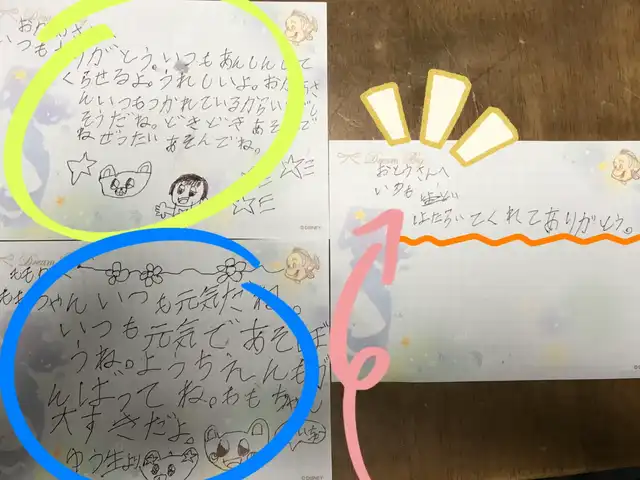 いつも
がとう。いつもあんしんして
くらせるよ。うれしいよ。おかあさ
んいつもつかれているから
そうだね。どきどきあそんで
ねぜったいあそんでね。
©DISNEY
ちゃんいつも元気だね。
いつも元気であそぼ
うね。ようちえんもが
んばってね。ももちゃん
大すきだよ。
ゆう生より
©DISNEY
Dream Big
おとうさんへ
いつも
はたらいてくれてありがとう。